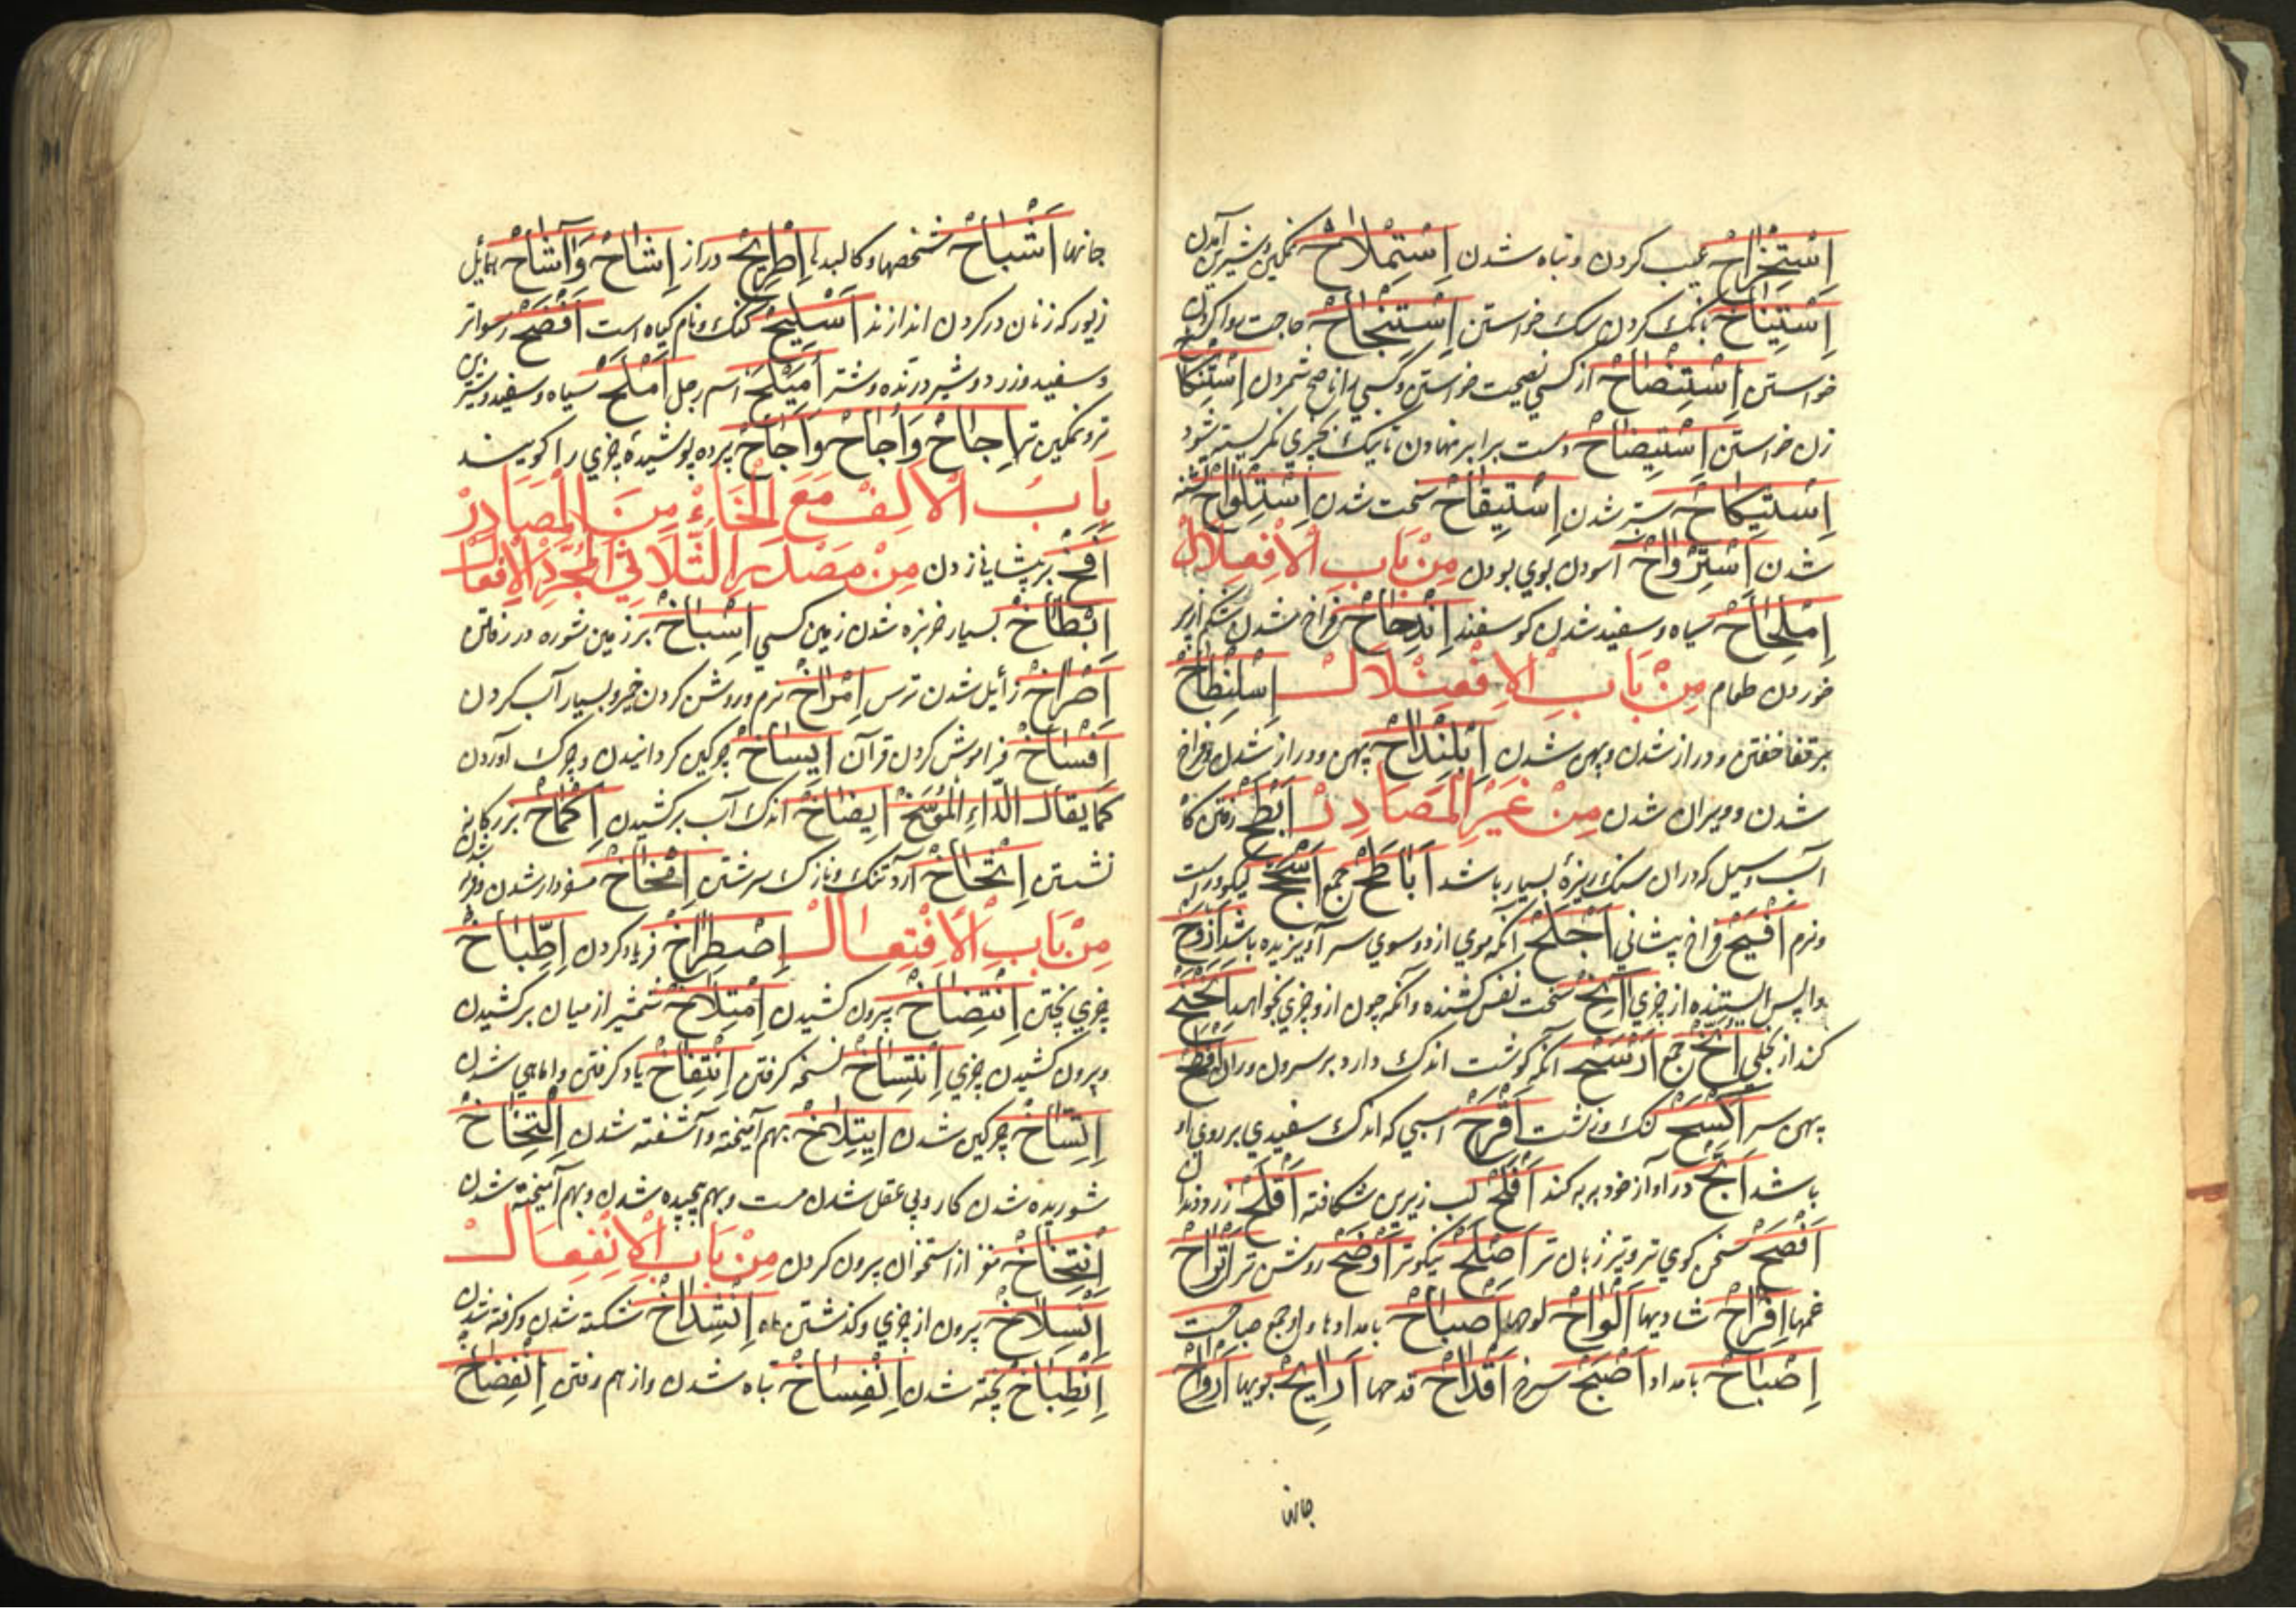 اِسْتِخْرَاحْ عیب کردن و تباه شدن اِسْتِمْلَاحْ نمکین و شیرین آمدن
اِسْتِنْبَاحْ بانک کردن سک خواستن اِسْتِنْجَاحْ حاجت روا کردن
خواستن اِسْتِنْصَاحْ از کسی نصیحت خواستن و کسی را ناصح شمردن اِسْتِنْكَاحْ
زن خواستن اِسْتِيضَاحْ دست برابر نهادن تا نیک بچیزی نکریسته شود
اِسْتِيكَاحْ ستبر شدن اِسْتِيقَاحْ سخت شدن اِسْتِلْوَاحْ تشنه
شدن اِسْتِرْوَاحْ آسودن بوی بودن مِنْ بَابِ الْاِفْعِلَالْ
اِمْلِحَاحْ سیاه و سفید شدن کوسفند اِنْدِحَاحْ فراخ شدن شکم از پر
خوردن طعام مِنْ بَابِ الْاِفْعِنْلَالْ اِسْلِنْطَاحْ
بر قفا خفتن و دراز شدن و پهن شدن اِبْلِنْدَاحْ پهن و دراز شدن و فراخ
شدن و ویران شدن مِنْ غَيْرِ الْمَصَادِرْ اَبْطَحْ رفتن کاه
آب و سیل که در ان سنک ریزۀ بسیار باشد اَبَاطِحْ جمع اَسْجَحْ نیکو و راست
و نرم اَفْيَحْ فراخ پیشانی اَجْلَحْ انکه موی از دو سوی سر او ریزیده باشد اَزْوَحْ
واپس ایستنده از چیزی اٰنِحْ سخت نفس کشنده و آنکه چون ازو چیزی بخواهند تَنَحْنُحْ
کند از بخیلی اُنَّحْ جمع اَرْسَحْ آنکه کوشت اندک دارد بر سرون و ران اَفْطَحْ
پهن سر اَكْسَحْ لنک و زشت اَقْرَحْ اسبی که اندک سفیدی بر روی او
باشد اَبَحّْ در آواز خود به به کند اَفْلَحْ لب زیرین شکافته اَقْلَحْ زرد دندان
اَفْصَحْ سخن کوی تر و تیز زبان تر اَصْلَحْ نیکوتر اَوْضَحْ روشن تر اَتْرَاحْ
غمها اَفْرَاحْ شادیها اَلْوَاحْ لوحها اَصْبَاحْ بامدادها و او جمع صباحست
اِصْبَاحْ بامداد اَصْبَحْ سرخ اَقْدَاحْ قدحها اَرَايِحْ بویها اَرْوَاحْ
جانها
جانها اَشْبَاحْ شخصها و کالبدها اِطْرِيحْ دراز اِشَاحْ وَاُشَاحْ حمایل
زیور که زنان در کردن اندازند اَسْلِيحْ کنک و نام کیاه است اَفْضَحْ رسواتر
و سفید و زرد و شیر درنده و شتر اُمَيْلَحْ اسم رجل اَمْلَحْ سیاه و سفید و شیرین
تر و نمکین تر اِجَاحْ وَاُجَاحْ وَاَجَاحْ پرده پوشیدۀ چیزی را کویند
بَابُ الْاَلِفْ مَعَ الْخَاءْ مِنَ الْمَصَادِرْ
اَفْخْ بر پیشانی زدن مِنْ مَصْدَرِ الثُّلَاثِي الْمُجَرَّدْ الْاِفْعَالْ
اِبْطَاخْ بسیار خربزه شدن زمین کسی اِسْبَاخْ بر زمین شوره در رفتن
اِصْرَاخْ زائل شدن ترس اِمْرَاخْ نرم و روشن کردن خمیر و بسیار آب کردن
اِفْسَاخْ فراموش کردن قرآن اِيسَاخْ چرکین کردانیدن و چرک آوردن
كَمَا يقالُ الدّاءِ الْمُوَسِّخْ اِيضَاخْ اندک آب بر کشیدن اِكْمَاخْ بزرکانه
نشستن اِنْخَاخْ آرد تنک و نازک سرشتن اِفْخَاخْ مغزدار شدن و فربه شدن
مِنْ بَابِ الْاِفْتِعَالْ اِصْطِرَاخْ فریاد کردن اِطِّبَاخْ
چیزی پختن اِنْتِضَاخْ بیرون کشیدن اِمْتِلَاخْ شمشیر از میان بر کشیدن
و بیرون کشیدن چیزی اِنْتِسَاخْ نسخه کرفتن اِنْتِفَاخْ باد کرفتن و اماهی شدن
اِتِّسَاخْ چرکین شدن اِيتِلَاخْ بهم آمیخته و آشفته شدن اِلْتِخَاخْ
شوریده شدن کار و بی عقل شدن مست و بهم پیچیده شدن و بهم آمیخته شدن
اِنْتِخَاخْ مغز از استخوان بیرون کردن مِنْ بَابِ الْاِنْفِعَالْ
اِنْسِلَاخْ بیرون از چیزی و کذشتن ماه اِنْشِدَاخْ شکسته شدن و کرفته شدن
اِنْطِبَاخْ پخته شدن اِنْفِسَاخْ تباه شدن و از هم رفتن اِنْفِضَاخْ